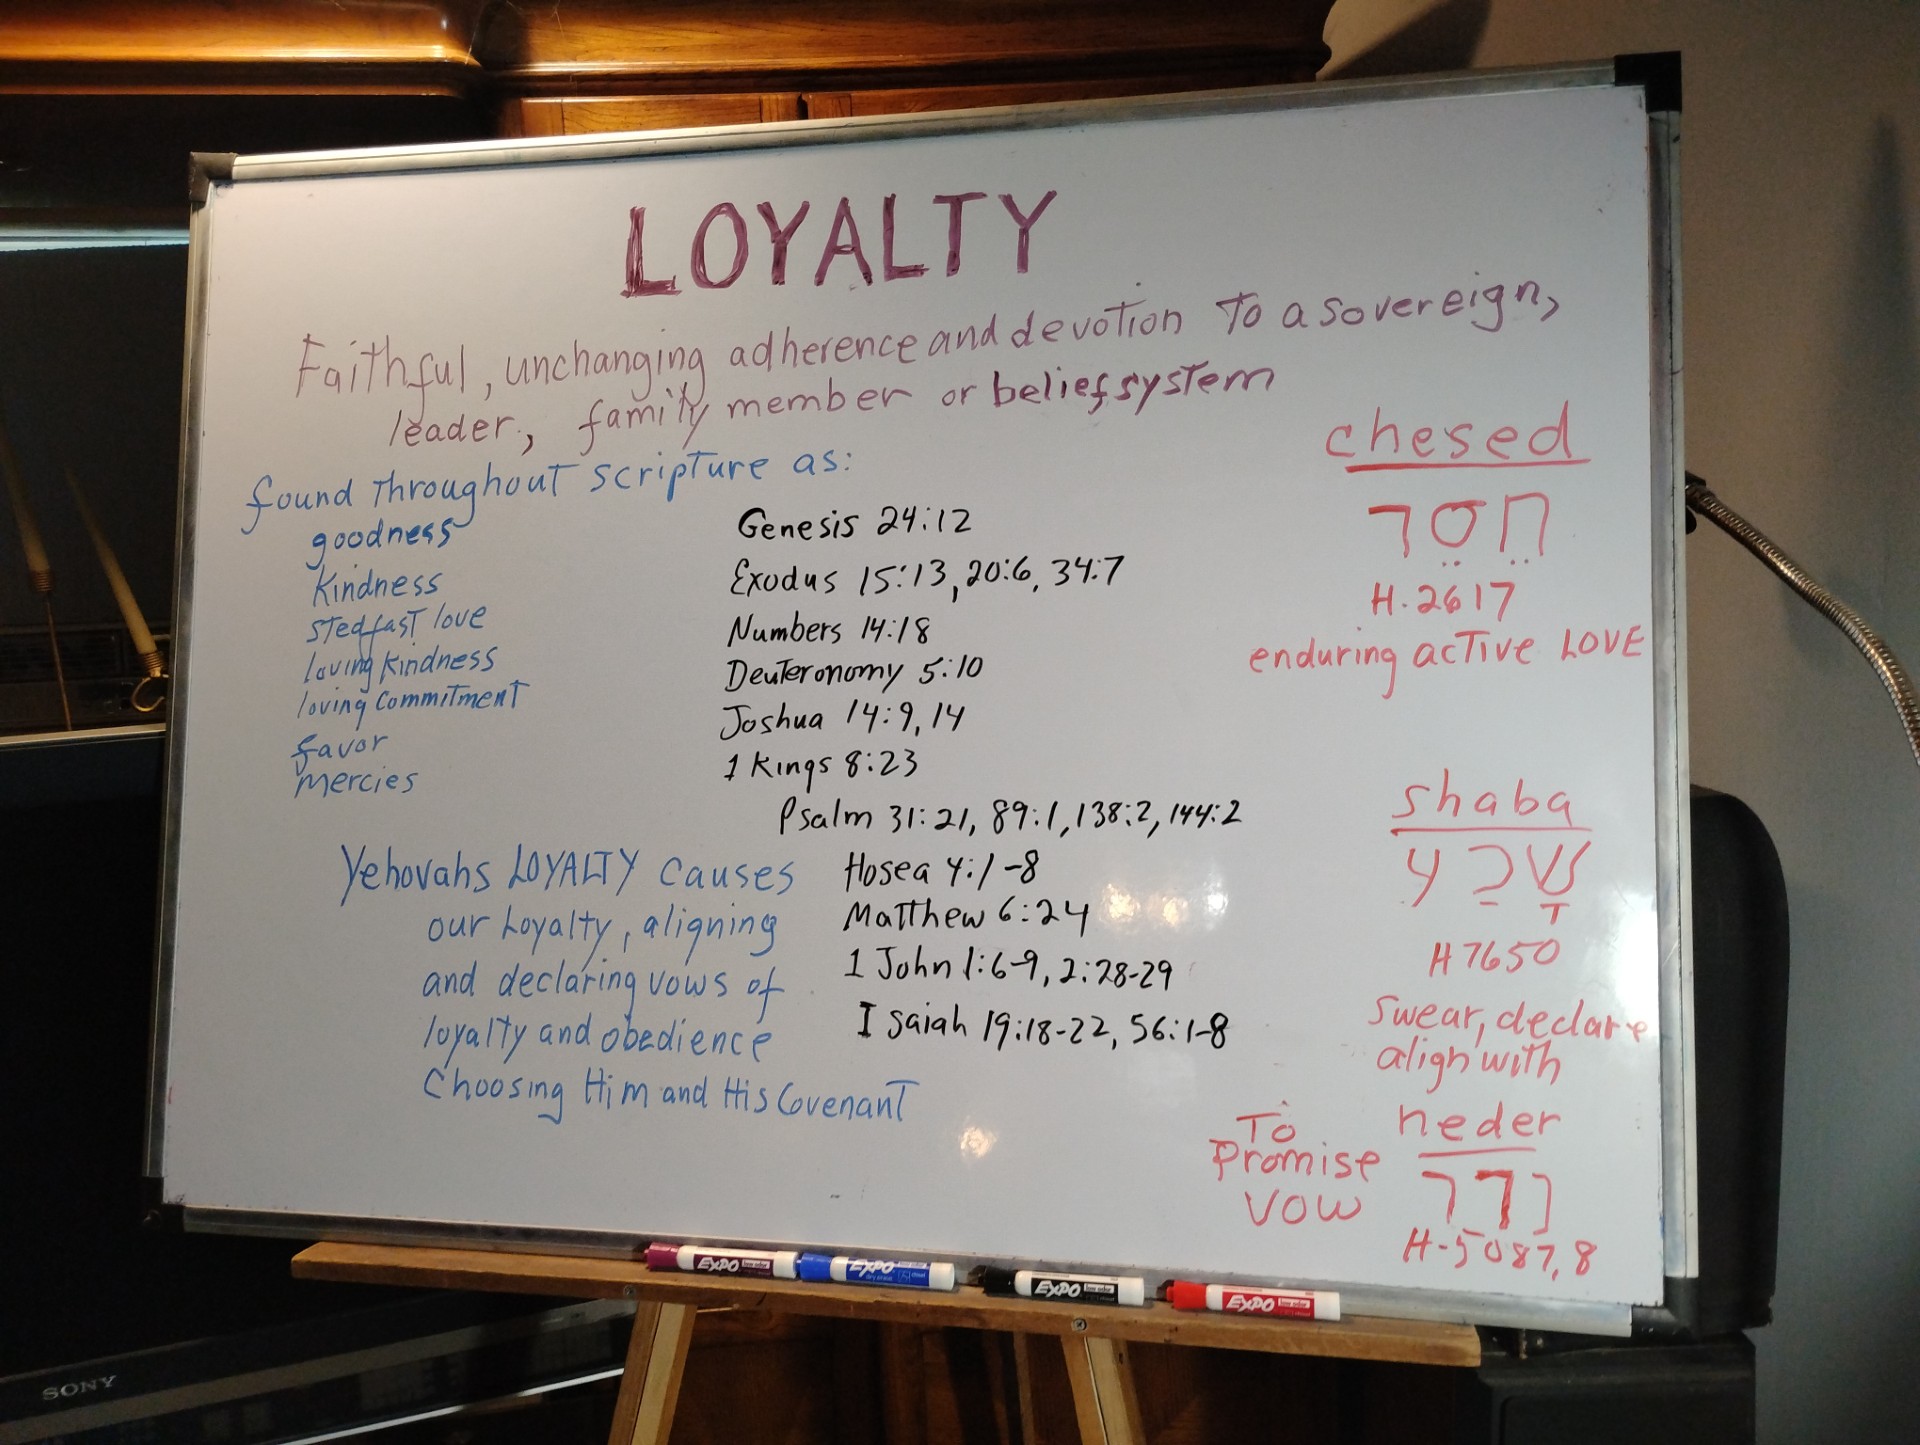 LOYALTY
Faithful, unchanging adherence and devotion To a sovereign,
leader, family member or belief system
found Throughout scripture as:
goodness
Kindness
stedfast love
loving kindness
loving commitment
favor
mercies
Genesis 24:12
Exodus 15:13, 20:6, 34:7
Numbers 14:18
Deuteronomy 5:10
Joshua 14:9, 14
1 Kings 8:23
Psalm 31:21, 89:1, 138:2, 144:2
Hosea 4:1-8
Matthew 6:24
1 John 1:6-9, 2:28-29
Isaiah 19:18-22, 56:1-8
Yehovahs LOYALTY causes
our Loyalty, aligning
and declaring vows of
loyalty and obedience
Choosing Him and His Covenant
chesed
חֵסֵד
H.2617
enduring active LOVE
shaba
שָׁבַע
H7650
swear, declare
align with
To
Promise
VOW
neder
נדר
H-5087,8
EXPO
EXPO
EXPO
EXPO
SONY